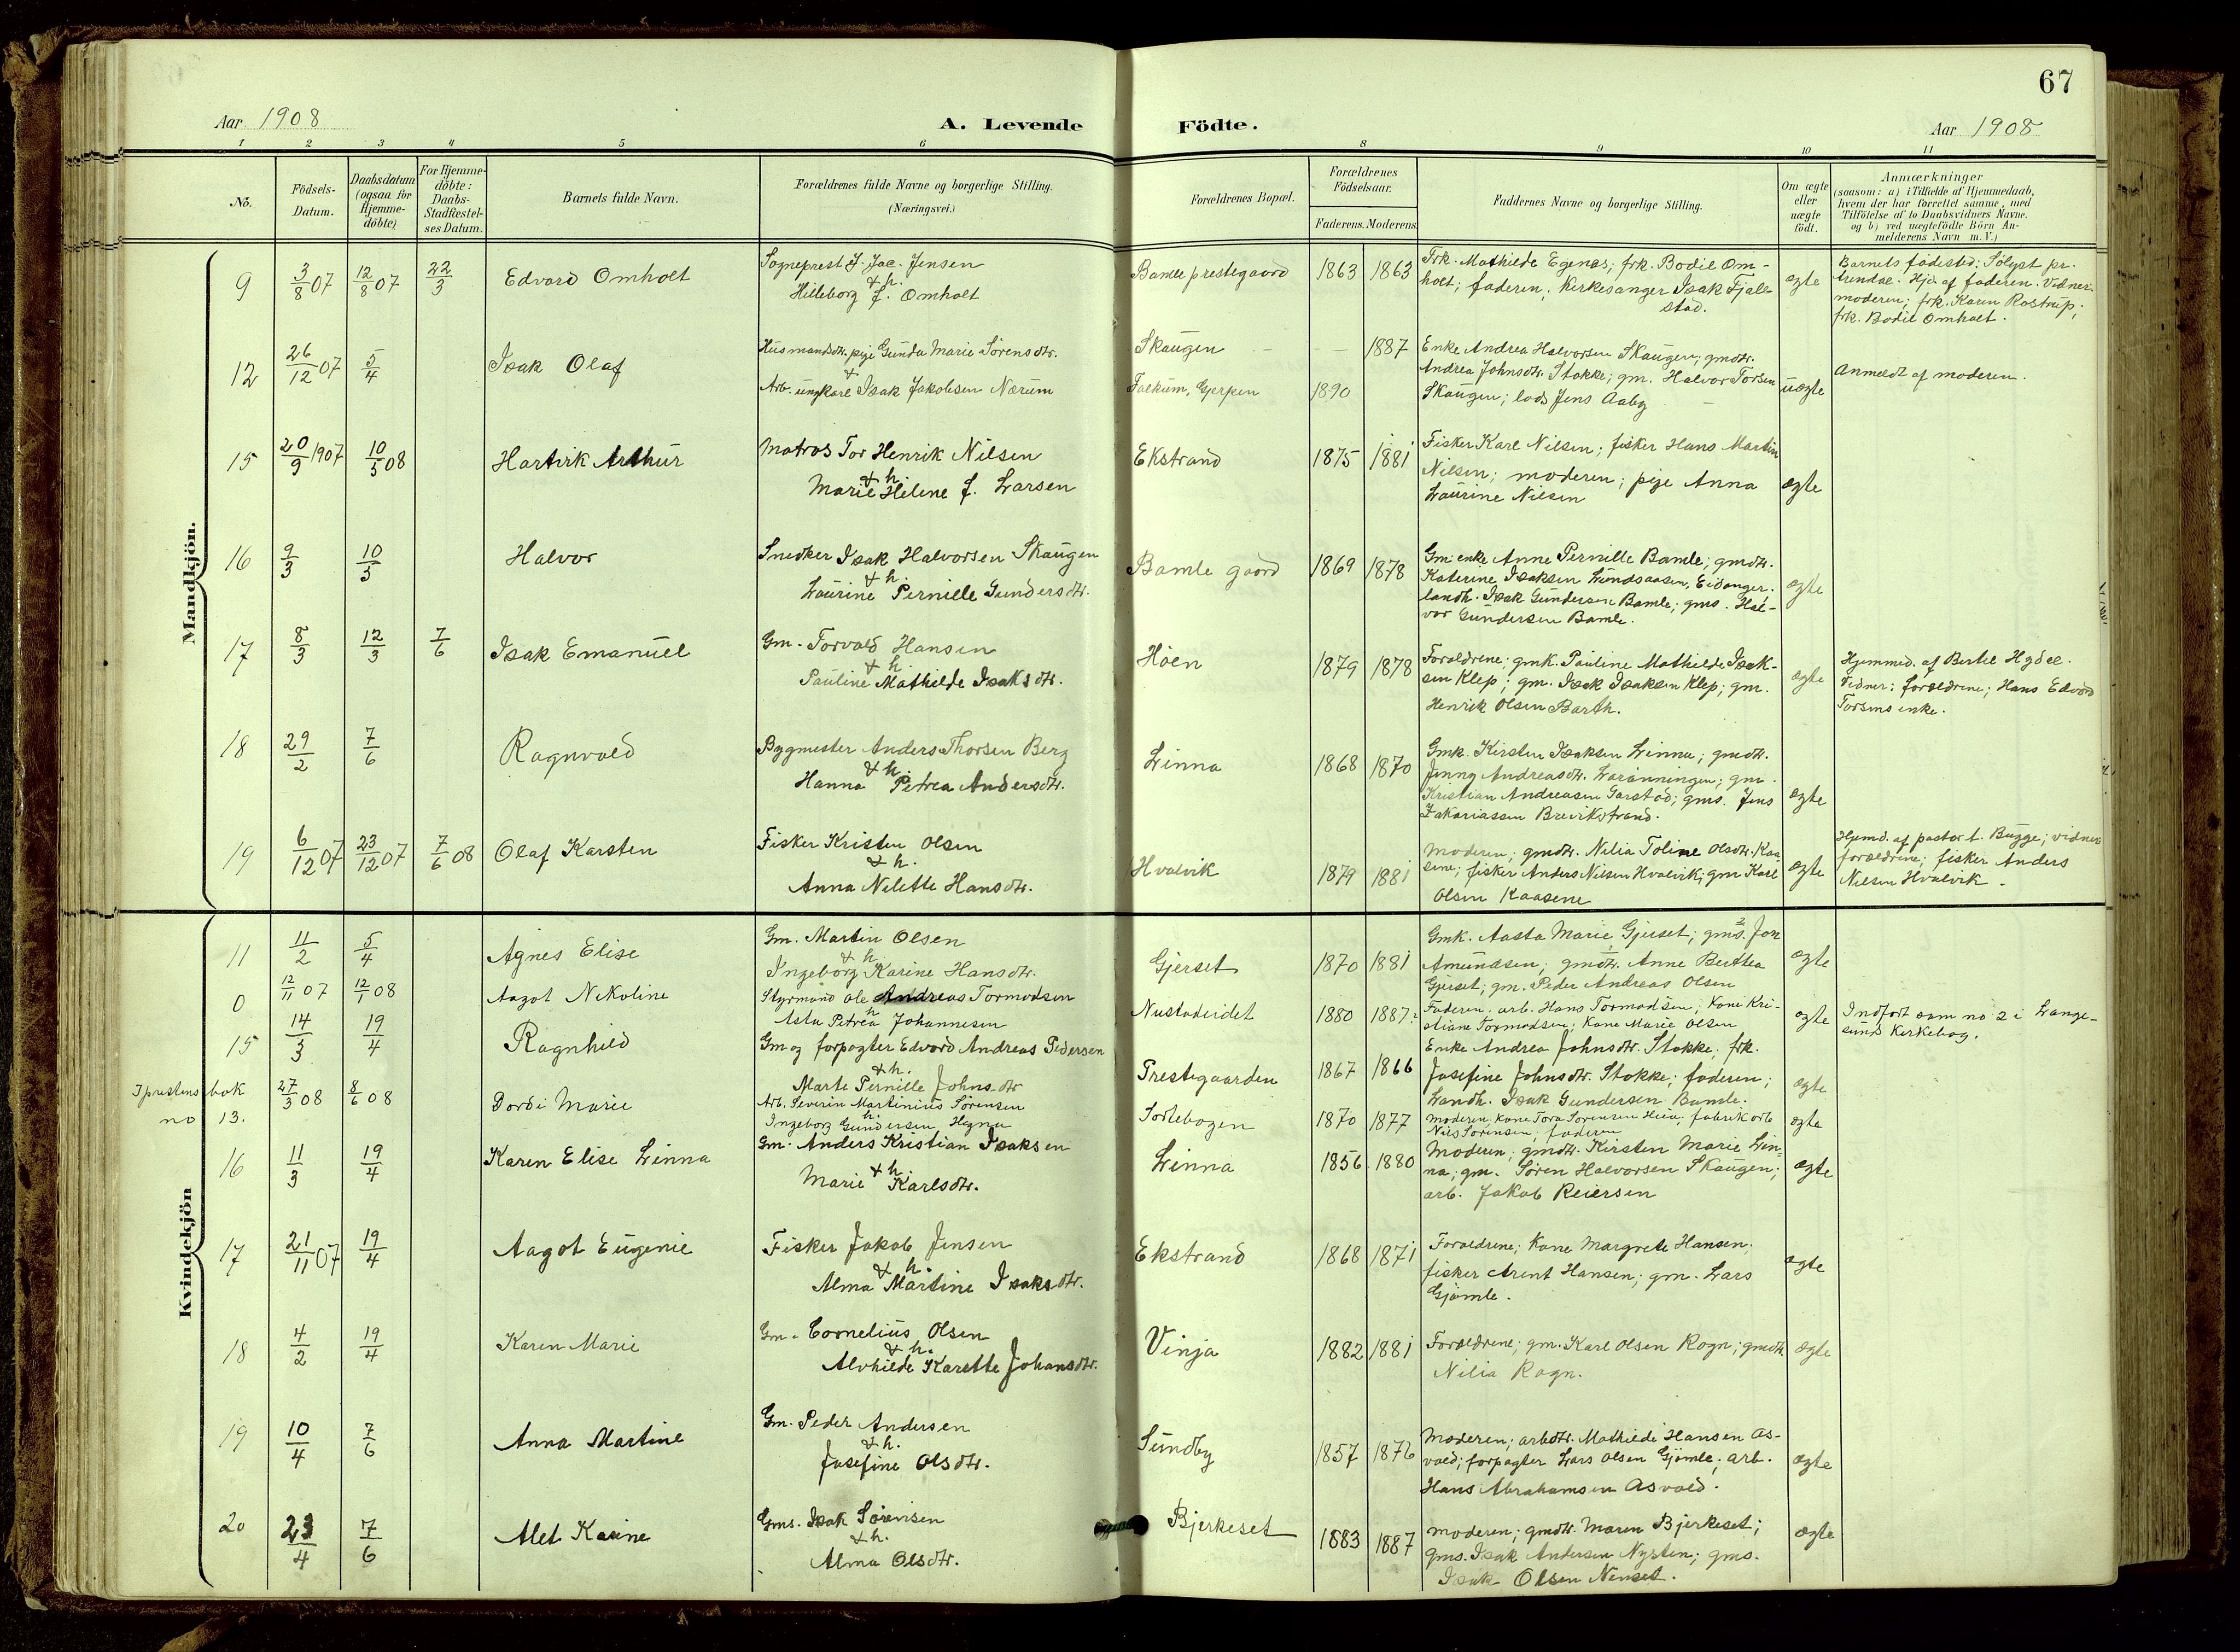 67
Aar 1908
A. Levende Födte.
Aar 1908
1 2 3 4 5 6 8 9 10 11
No.
Födsels-
Datum.
Daabsdatum
(ogsaa for
Hjemme-
döbte)
For Hjemme-
döbte:
Daabs-
Stadfæstel-
ses Datum.
Barnets fulde Navn.
Forældrenes fulde Navne og borgerlige Stilling.
(Næringsvei.)
Forældrenes Bopæl.
Forældrenes
Födselsaar.
Faderens. Moderens.
Faddernes Navne og borgerlige Stilling.
Om ægte
eller
uægte
födt.
Anmærkninger
(saasom: a) i Tilfælde af Hjemmedaab,
hvem der har forrettet samme, med
Tilföielse af to Daabsvidners Navne.
og b) ved uægtefödte Börn An-
melderens Navn m. V.)
Mandkjön.
9 3/8 07 12/8 07 22/3 Edvard Omholt
Sogneprest J. Jac. Jensen
& h.
Hilleborg f. Omholt
Bamle prestegaard 1863 1863
Frk. Mathilde Egenes; frk. Bodil Om-
holt; faderen; kirkesanger Isak Fjale-
stad.
ægte
Barnets fødested: Sølyst pr.
Arendal. Hjd. af faderen. Vidner:
moderen; frk. Karen Rostrup;
frk. Bodil Omholt.
12 26/12 07 5/4 Isak Olaf
Husmandsdtr. pige Gunda Marie Sørensdtr.
&
Arb. ungkarl Isak Jakobsen Nærum
Skaugen – – 1887
Falkum, Gjerpen 1890
Enke Andrea Halvorsen Skaugen; gmdtr.
Andrea Johnsdtr. Stokke; gm. Halvor Torsen
Skaugen; lods Jens Aaby
uægte
Anmeldt af moderen.
15 20/9 1907 10/5 08 Hartvik Arthur
Matros Tor Henrik Nilsen
& h.
Marie Helene f. Larsen
Ekstrand 1875 1881
Fisker Karl Nilsen; fisker Hans Martin
Nilsen; moderen; pige Anna
Laurine Nilsen
ægte
16 9/3 10/5 Halvor
Snedker Isak Halvorsen Skaugen
& h.
Laurine Pernille Gundersdtr.
Bamle gaard 1869 1878
Gm enke Anne Pernille Bamle; gmdtr.
Katerine Isaksen Lundsaasen, Eidanger.
landh. Isak Gundersen Bamle; gms. Hal-
vor Gundersen Bamle.
ægte
17 8/3 12/3 7/6 Isak Emanuel
Gm. Torvald Hansen
& h.
Pauline Mathilde Isaksdtr.
Høen 1879 1878
Forældrene; gmk. Pauline Mathilde Isak-
sen Klep; gm. Isak Isaksen Klep; gm.
Henrik Olsen Barth.
ægte
Hjemmed. af Bertel Hydle.
Vidner: forældrene; Hans Edvard
Torsens enke.
18 29/2 7/6 Ragnvald
Bygmester Anders Thorsen Berg
& h.
Hanna Petrea Andersdtr.
Linna 1868 1870
Gmk. Kirsten Isaksen Linna; gmdtr.
Jenny Andreasdtr. Larønningen; gm.
Kristian Andreasen Garstad; gms. Jens
Zakariassen Brevikstrand.
ægte
19 6/12 07 23/12 07 7/6 08 Olaf Karsten
Fisker Kristen Olsen
& h.
Anna Nilette Hansdtr.
Hvalvik 1879 1881
Moderen; gmdtr. Nilia Toline Olsdtr. Kaa-
sene; fisker Anders Nilsen Hvalvik; gm Karl
Olsen Kaasene
ægte
Hjemd. af pastor t. Bugge; vidner
forældrene; fisker Anders
Nilsen Hvalvik.
Kvindekjön
11 11/2 5/4 Agnes Elise
Gm. Martin Olsen
& h.
Ingeborg Karine Hansdtr.
Gjerset 1870 1881
Gmk. Aasta Marie Gjerset; gms. Jon
Amundsen; gmdtr. Anne Berthea
Gjerset; gm. Peder Andreas Olsen
ægte
0 12/11 07 12/1 08 Aagot Nikoline
Styrmand Ole Andreas Tormodsen
h
Asta Petrea Johannesen
Nustadeidet 1880 1887?
Faderen. arb. Hans Tormodsen; Kone Kri-
stiane Tormodsen; Kone Marie Olsen
ægte
Indført som no 2 i Lange-
sund Kirkebog.
15 14/3 19/4 Ragnhild
Gm og forpagter Edvard Andreas Pedersen
& h.
Marte Pernille Johnsdtr
Prestegaarden 1867 1866
Enke Andrea Johnsdtr. Stokke; frk.
Josefine Johnsdtr. Stokke; faderen;
Landh. Isak Gundersen Bamle.
ægte
I prestens bok
no 13.
27/3 08 8/6 08 Dordi Marie
Arb. Severin Martinius Sørensen
h.
Ingeborg Gundersen Hegna
Sortebogen 1870 1877
Moderen, Kone Tora Sørensen Heia; fabrikarb
Nils Sørensen; faderen
ægte
16 11/3 19/4 Karen Elise Linna
Gm. Anders Kristian Isaksen
& h.
Marie Karlsdtr.
Linna 1856 1880
Moderen; gmdtr. Kirsten Marie Lin-
na; gm. Søren Halvorsen Skaugen;
arb. Jakob Reiersen
ægte
17 21/11 07 19/4 Aagot Eugenie
Fisker Jakob Jensen
& h.
Alma Martine Isaksdtr.
Ekstrand 1868 1871
Forældrene; Kone Margrete Hansen;
fisker Arent Hansen; gm. Lars
Gjømle.
ægte
18 4/2 19/4 Karen Marie
Gm. Cornelius Olsen
& h.
Alvhilde Karette Johansdtr.
Vinja 1882 1881
Forældrene; gm. Karl Olsen Rogn; gmdtr.
Nilia Rogn.
ægte
19 10/4 7/6 Anna Martine
Gm. Peder Andersen
& h.
Josefine Olsdtr.
Sundby 1857 1876
Moderen; arbdtr. Mathilde Hansen As-
vald; forpagter Lars Olsen Gjømle; arb.
Hans Abrahamsen Asvald.
ægte
20 23/4 7/6 Alet Karine
Gms. Isak Sørensen
& h.
Alma Olsdtr.
Bjerkeset 1883 1887
Moderen; gmdtr. Maren Bjerkeset;
gms. Isak Andersen Nysten; gms.
Isak Olsen Nenset.
ægte